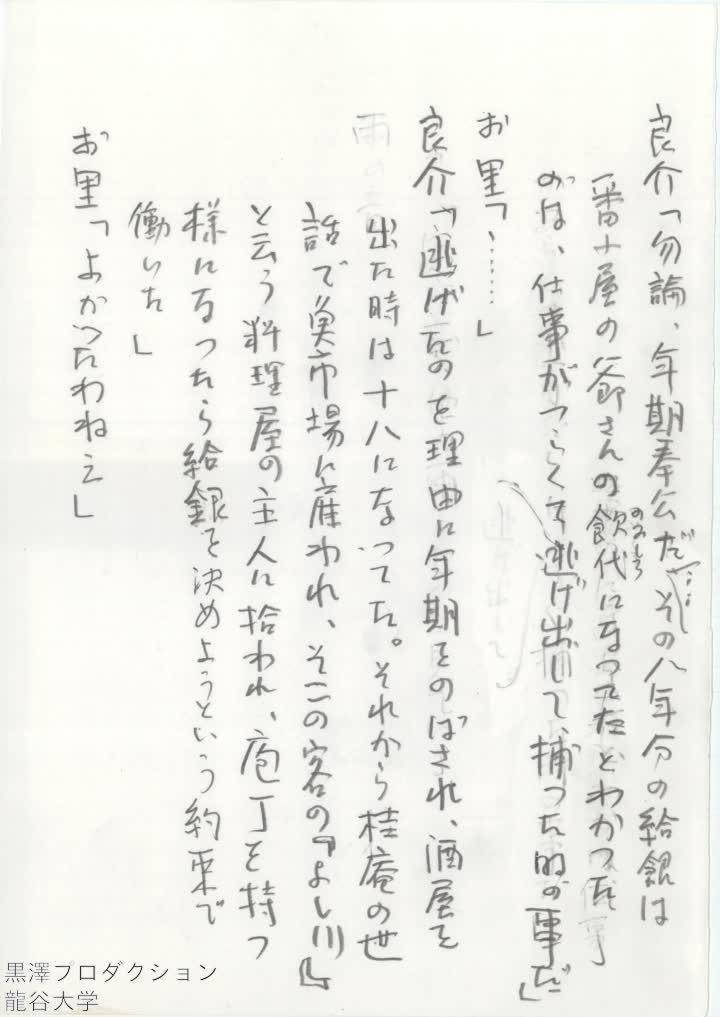 良介「勿論、年期奉公だ……その八年分の給銀は
一番小屋の爺さんの飲代になってたとわかった
のみしろ
のは、仕事がつらくて逃げ出して、捕った時の事だ」
お里「、……」
良介「逃げたのを理由に年期をのばされ、酒屋を
出た時は十八になってた。それから桂庵の世
話で魚市場に雇われ、そこの客の『よし川』
と云う料理屋の主人に拾われ、庖丁を持つ
様になったら給銀を決めようという約束で
働いた」
お里「よかったわねえ」
黒澤プロダクション
龍谷大学